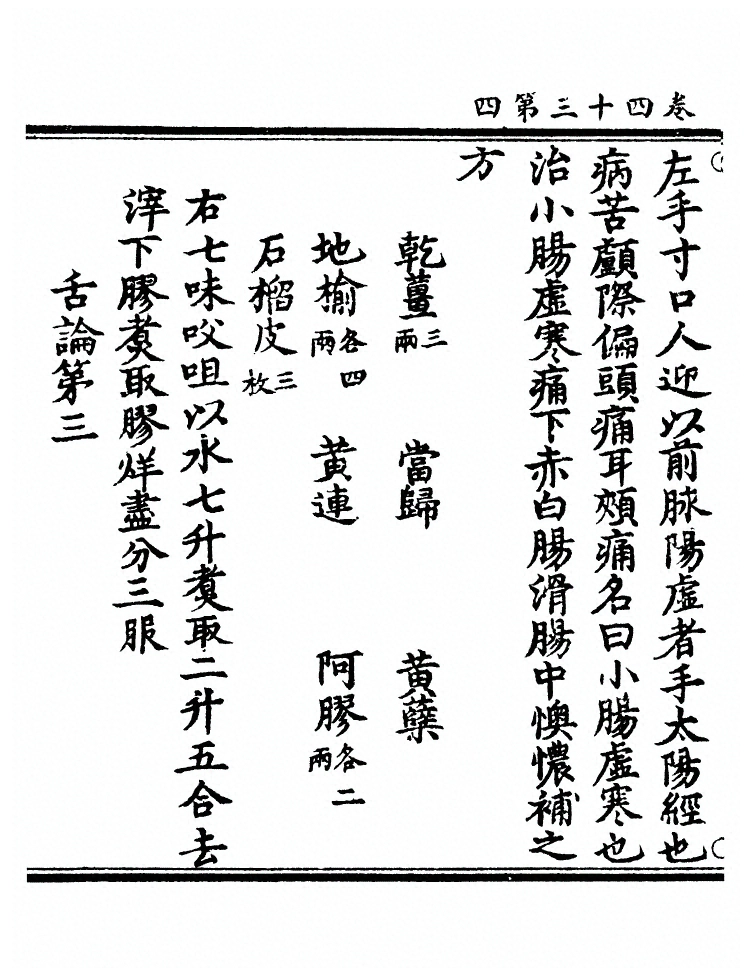 卷四十三第四
左手寸口人迎以前脉陽虛者手太陽經也
病苦顱際偏頭痛耳頰痛名曰小腸虛寒也
治小腸虛寒痛下赤白腸滑腸中懊憹補之
方
乾薑三兩 當歸 黃蘗
地榆各四兩 黃連 阿膠各二兩
石榴皮三枚
右七味㕮咀以水七升煑取二升五合去
滓下膠煑取膠烊盡分三服
舌論第三